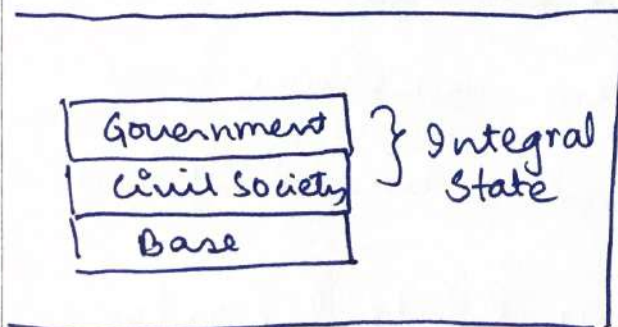 Government
Civil Society
Base
} Integral
State